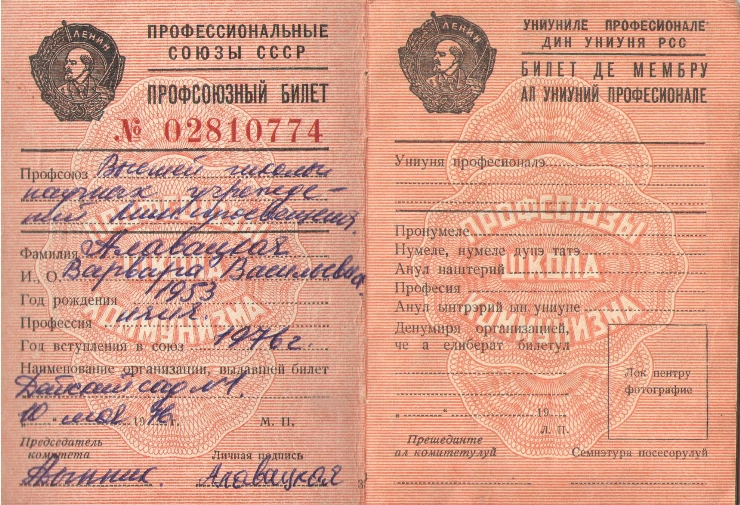 ЛЕНИН
ПРОФЕССИОНАЛЬНЫЕ
СОЮЗЫ СССР
ПРОФСОЮЗНЫЙ БИЛЕТ
№ 02810774
Профсоюз Высшей школы
научных учрежде-
ний Минпросвещения
Фамилия Алавацкая
И., О. Варвара Васильевна
Год рождения 1953
Профессия
Год вступления в союз 1976 г.
Наименование организации, выдавшей билет
Детский сад №1
„10" мая 1976 г. М. П.
Председатель
комитета
Личная подпись
Алавацкая
ПРОФСОЮЗЫ
ШКОЛА
КОММУНИЗМА
3
ЛЕНИН
УНИУНИЛЕ ПРОФЕСИОНАЛЕ
ДИН УНИУНЯ РСС
БИЛЕТ ДЕ МЕМБРУ
АЛ УНИУНИЙ ПРОФЕСИОНАЛЕ
Униуня професионалэ
Пронумеле
Нумеле, нумеле дупэ татэ
Анул наштерий
Професия
Анул ынтрэрий ын униуне
Денумиря организацией,
че а елиберат билетул
„ " 19
Л. П.
Лок пентру
фотографие
Прешединте
ал комитетулуй
Семнэтура посесорулуй
ПРОФСОЮЗЫ
ШКОЛА
КОММУНИЗМА